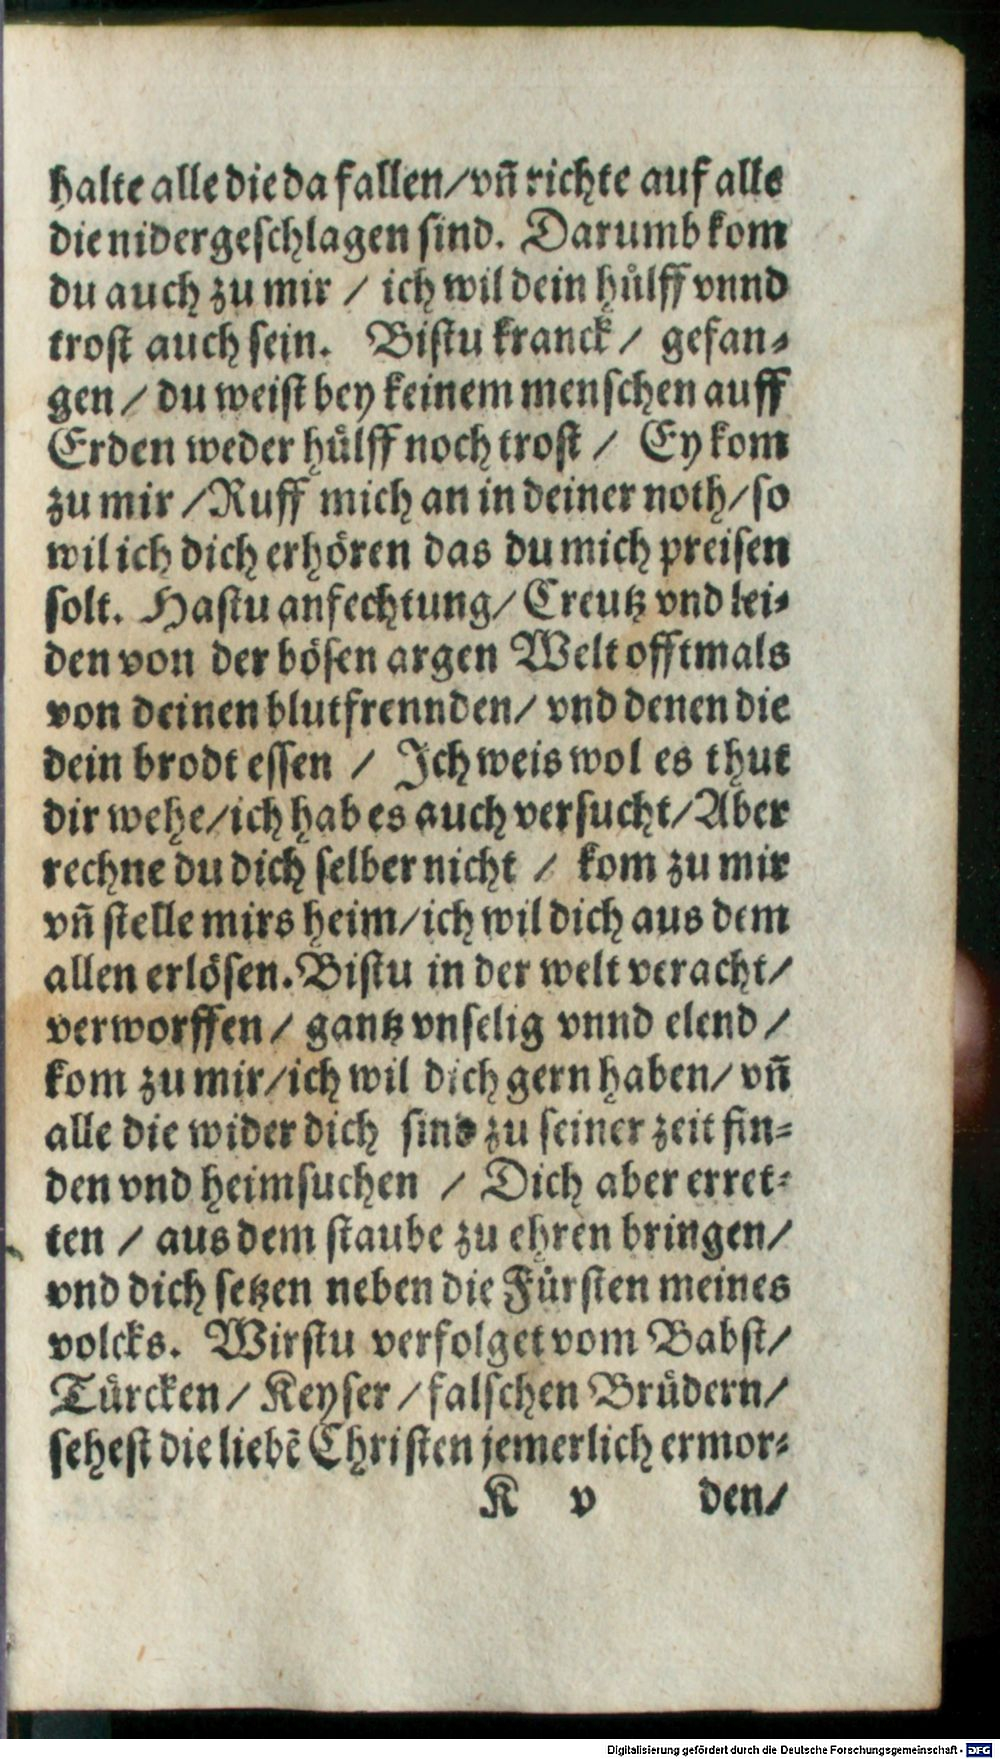 halte alle die da fallen/vñ richte auf alle
die nidergeschlagen sind. Darumb kom
du auch zu mir / ich wil dein hülff vnnd
trost auch sein. Bistu kranck / gefan-
gen / du weist bey keinem menschen auff
Erden weder hülff noch trost / Ey kom
zu mir /Ruff mich an in deiner noth/so
wil ich dich erhören das du mich preisen
solt. Hastu anfechtung/ Creutz vnd lei-
den von der bösen argen Welt offtmals
von deinen blutfrennden/ vnd denen die
dein brodt essen / Ich weis wol es thut
dir wehe/ich hab es auch versucht/Aber
rechne du dich selber nicht / kom zu mir
vñ stelle mirs heim/ich wil dich aus dem
allen erlösen. Bistu in der welt veracht/
verworffen/ gantz vnselig vnnd elend /
kom zu mir/ich wil dich gern haben/ vñ
alle die wider dich sind zu seiner zeit fin-
den vnd heimsuchen / Dich aber erret-
ten / aus dem staube zu ehren bringen/
vnd dich setzen neben die Fürsten meines
volcks. Wirstu verfolget vom Babst/
Türcken/ Keyser /falschen Brüdern/
sehest die liebẽ Christen jemerlich ermor-
K v den/
Digitalisierung gefördert durch die Deutsche Forschungsgemeinschaft - DFG